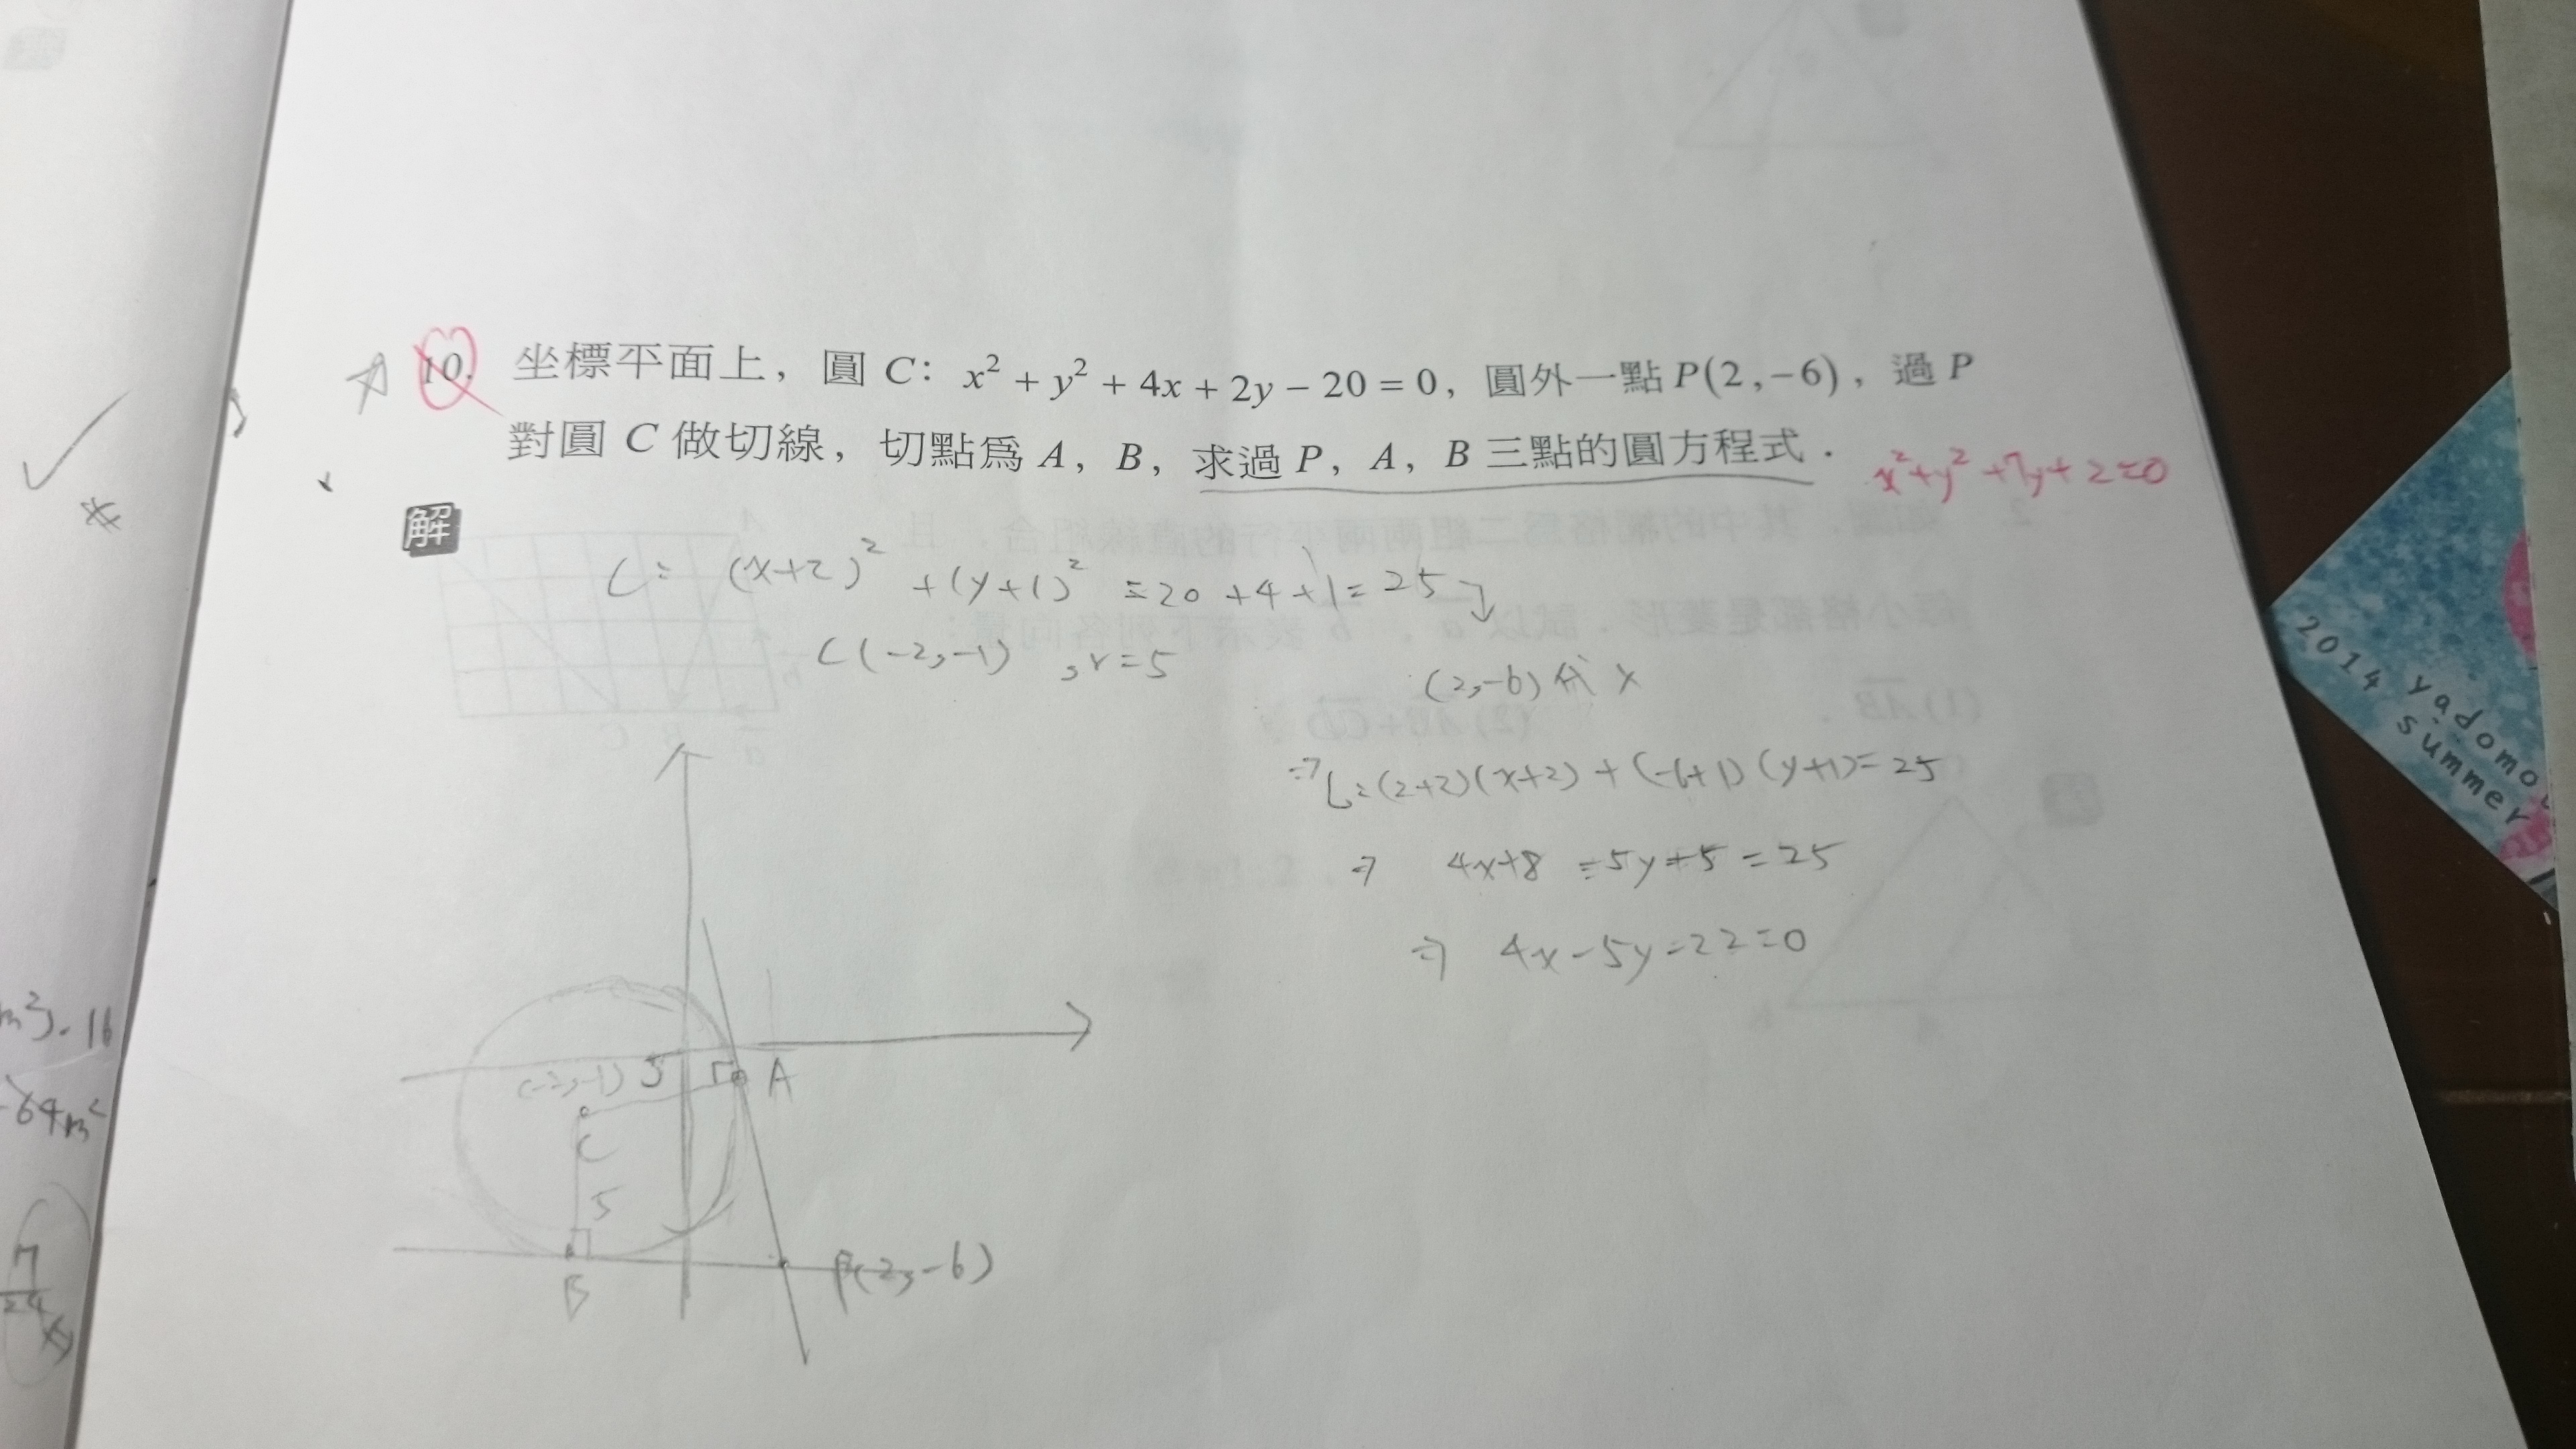 10. 坐標平面上，圓 C：x² + y² + 4x + 2y − 20 = 0，圓外一點 P(2,−6)，過 P
對圓 C 做切線，切點為 A，B，求過 P，A，B 三點的圓方程式．
x²+y²+7y+2=0
解
C: (x+2)² + (y+1)² = 20 + 4 + 1 = 25
C(-2,-1) , r=5
(2,-6) 代
⇒ L: (2+2)(x+2) + (-6+1)(y+1) = 25
⇒ 4x+8 -5y+5 = 25
⇒ 4x-5y-22=0
(-2,-1) 5 A
C
5
B
P(2,-6)
m²).16
-64m²
7
24
2014 yadomo
summer